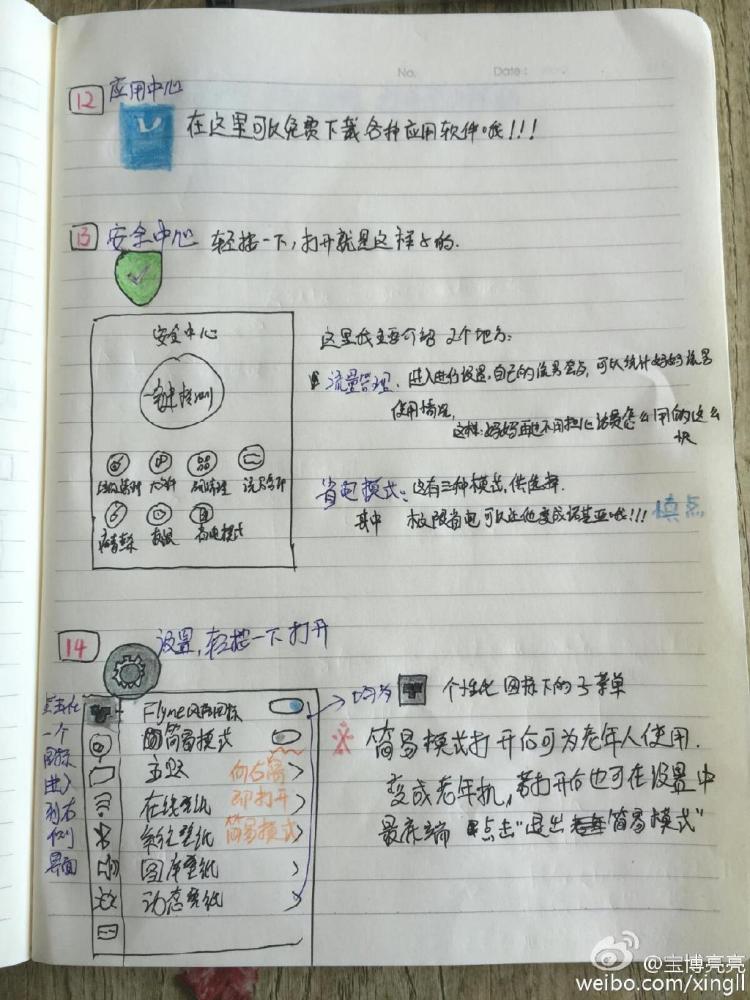 No.
Date:
12 应用中心
在这里可以免费下载各种应用软件哦!!!
13 安全中心 轻按一下,打开就是这样子的.
安全中心
一键检测
病毒查杀 省电模式
这里我主要介绍2个地方:
流量管理. 进入进行设置.自己的流量套餐,可以统计好好流量
使用情况,
这样:妈妈再也不用担心话费怎么用的这么
快
省电模式:这有三种模式,供选择.
其中 极限省电可以让他变成诺基亚哦!!! 慎点
14 设置,轻按一下打开
点击任一个图标进入到右侧界面
Flyme风格图标
简易模式
主题
在线壁纸
系统壁纸
图库壁纸
动态壁纸
向右离
即打开
简易模式
均为 个性化图标下的子菜单
简易模式打开后可为老年人使用.
变成老年机,若打开后也可在设置中
最底端 点击“退出简易模式”
@宝博亮亮
weibo.com/xingll